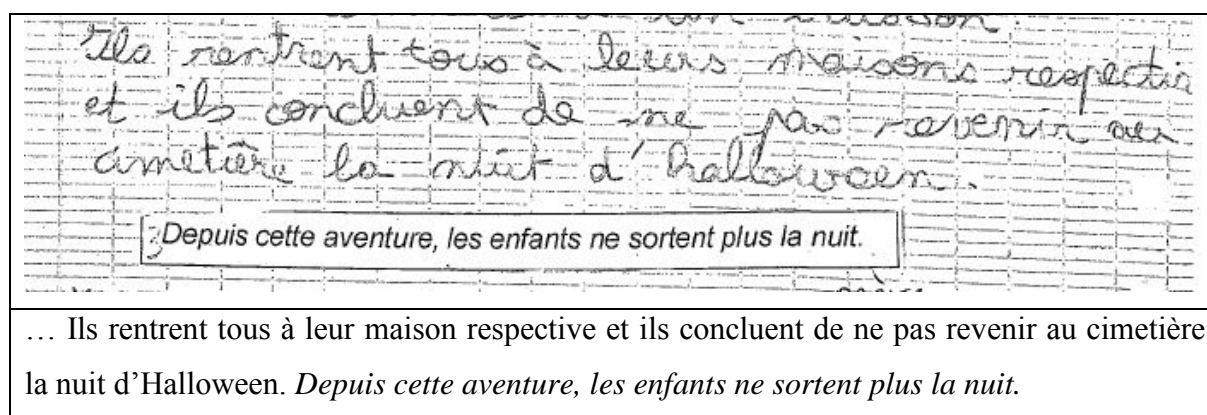 Ils rentrent tous à leurs maisons respectiv
et ils concluent de ne pas revenir au
cimetière la nuit d'halloween.
Depuis cette aventure, les enfants ne sortent plus la nuit.
… Ils rentrent tous à leur maison respective et ils concluent de ne pas revenir au cimetière
la nuit d'Halloween. Depuis cette aventure, les enfants ne sortent plus la nuit.